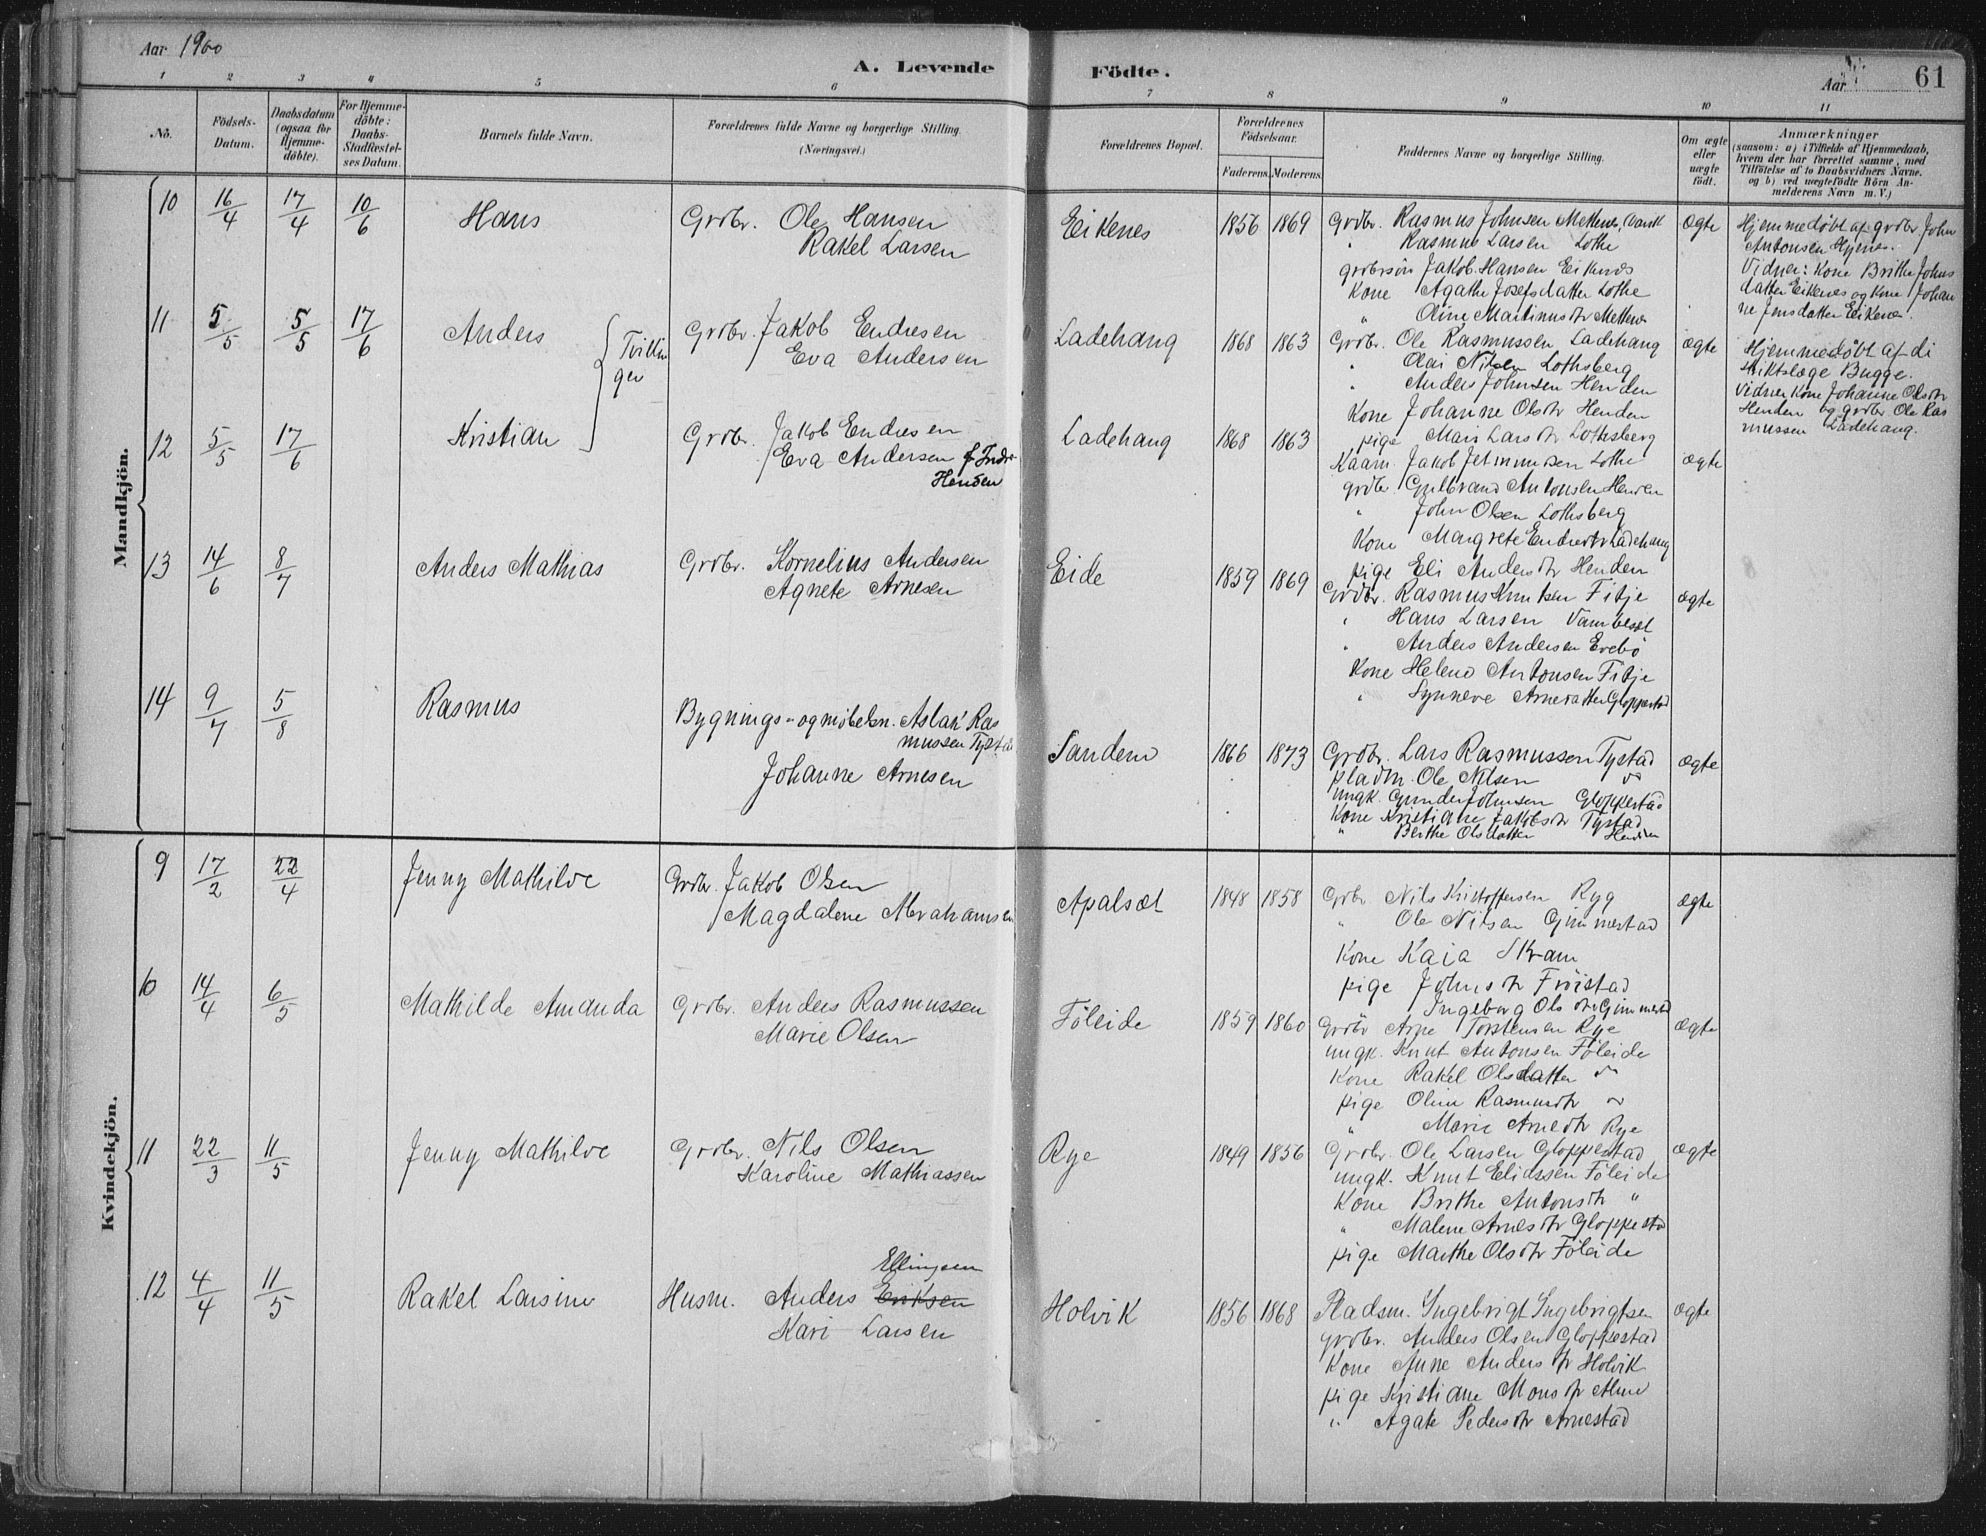 Aar 1900
A. Levende Födte.
Aar 61
1 2 3 4 5 6 7 8 9 10 11
No.
Födsels-Datum.
Daabsdatum (ogsaa for Hjemme-döbte).
For Hjemme-döbte: Daabs-Stadfæstel-ses Datum.
Barnets fulde Navn.
Forældrenes fulde Navne og borgerlige Stilling. (Næringsvei.)
Forældrenes Bopæl.
Forældrenes Födselsaar.
Faderens. Moderens.
Faddernes Navne og borgerlige Stilling.
Om ægte eller uægte födt.
Anmærkninger
(saasom: a) i Tilfælde af Hjemmedaab,
hvem der har forrettet samme, med
Tilföielse af to Daabsvidners Navne.
og b) ved uægtefödte Börn An-
melderens Navn m. V.)
Mandkjön.
10 16/4 17/4 10/6 Hans Grdbr. Ole Hansen Eikenes 1856 1869 Grdbr. Rasmus Johnsen Ægte
Rakel Larsen
" Rasmus Larsen Lothe
grdbrsön Jakob Hansen Eikenes
Kone Agathe Josefsdatter Lothe
" Oline Martinusdtr
Hjemmedöbt af grdbr. John
Antonsen Hjenes.
Vidner: Kone Brithe Johns
datter Eikenes og Kone Johan
ne Jensdatter Eikenes.
11 5/5 5/5 17/6 Anders Tvillin Grdbr. Jakob Endresen Ladehang 1868 1863 Grdbr. Ole Rasmussen Ladehang ægte
ger Eva Andersen
" Olai Nilsen Lothsberg
" Anders Johnsen Henden
Kone Johanne Olsdtr Henden
pige Mari Larsdtr Lothsberg
Hjemmedöbt af di
striktslæge Bugge.
Vidner Kone Johanne Olsdtr
Henden og grdbr Ole Ras
mussen Ladehang.
12 5/5 17/6 Kristian Grdbr. Jakob Endresen Ladehang 1868 1863 Kaarm. Jakob Lothe ægte
Eva Andersen f. Indre
Henden
grdbr. Gulbrand Antonsen Henden
" John Olsen Lothsberg
Kone Margrete Endresdtr Ladehang
pige Eli Andersdtr Henden
13 14/6 8/7 Anders Mathias Grdbr. Kornelius Andersen Eide 1859 1869 Grdbr. Rasmus Knutsen Fitje ægte
Agnete Arnesen
" Hans Larsen
" Anders Andersen Evebö
Kone Helene Antonsen Fitje
" Synneve Arnesdatter Gloppestad
14 9/7 5/8 Rasmus Bygnings- og möbelsn. Aslak Ras
mussen Tystad
Johanne Arnesen
Sandene 1866 1873 Grdbr. Lars Rasmussen Tystad ægte
pladsm. Ole Nilsen do
ungk. Gunder Johnsen Gloppestad
Kone Kristiane Jakobsdtr Tystad
" Berthe Olsdatter Henden
Kvindekjön.
9 17/2 22/4 Jenny Mathilde Grdbr. Jakob Olsen Apalsæt 1848 1858 Grdbr. Nils Kristoffersen Ryg ægte
Magdalene Abrahamsen
" Ole Nilsen Gimmestad
Kone Kaia Skram
pige Johnsdtr Fröistad
Ingeborg Olsdtr Gimmestad
10 14/4 6/5 Mathilde Amanda Grdbr. Anders Rasmussen Föleide 1859 1860 Grdbr Arne Torstensen Rye ægte
Marie Olsen
ungk. Knut Antonsen Föleide
Kone Rakel Olsdatter do
pige Oline Rasmusdtr do
" Marie Arnedtr Rye
11 22/3 11/5 Jenny Mathilde Grdbr. Nils Olsen Rye 1849 1856 Grdbr. Ole Larsen Gloppestad ægte
Karoline Mathiassen
ungk. Knut Eliassen Föleide
Kone Brithe Antonsdtr "
" Malene Arnesdtr Gloppestad
pige Marthe Olsdtr Föleide
Ellingsen
12 4/4 11/5 Rakel Larsine Husm. Anders Eriksen Holvik 1856 1868 Pladsm. Ingebrigt Ingebrigtsen ægte
Kari Larsen
grdbr. Anders Olsen Gloppestad
Kone Anne Andersdtr Holvik
pige Kristiane Monsdtr
" Agate Pedersdtr Arnestad